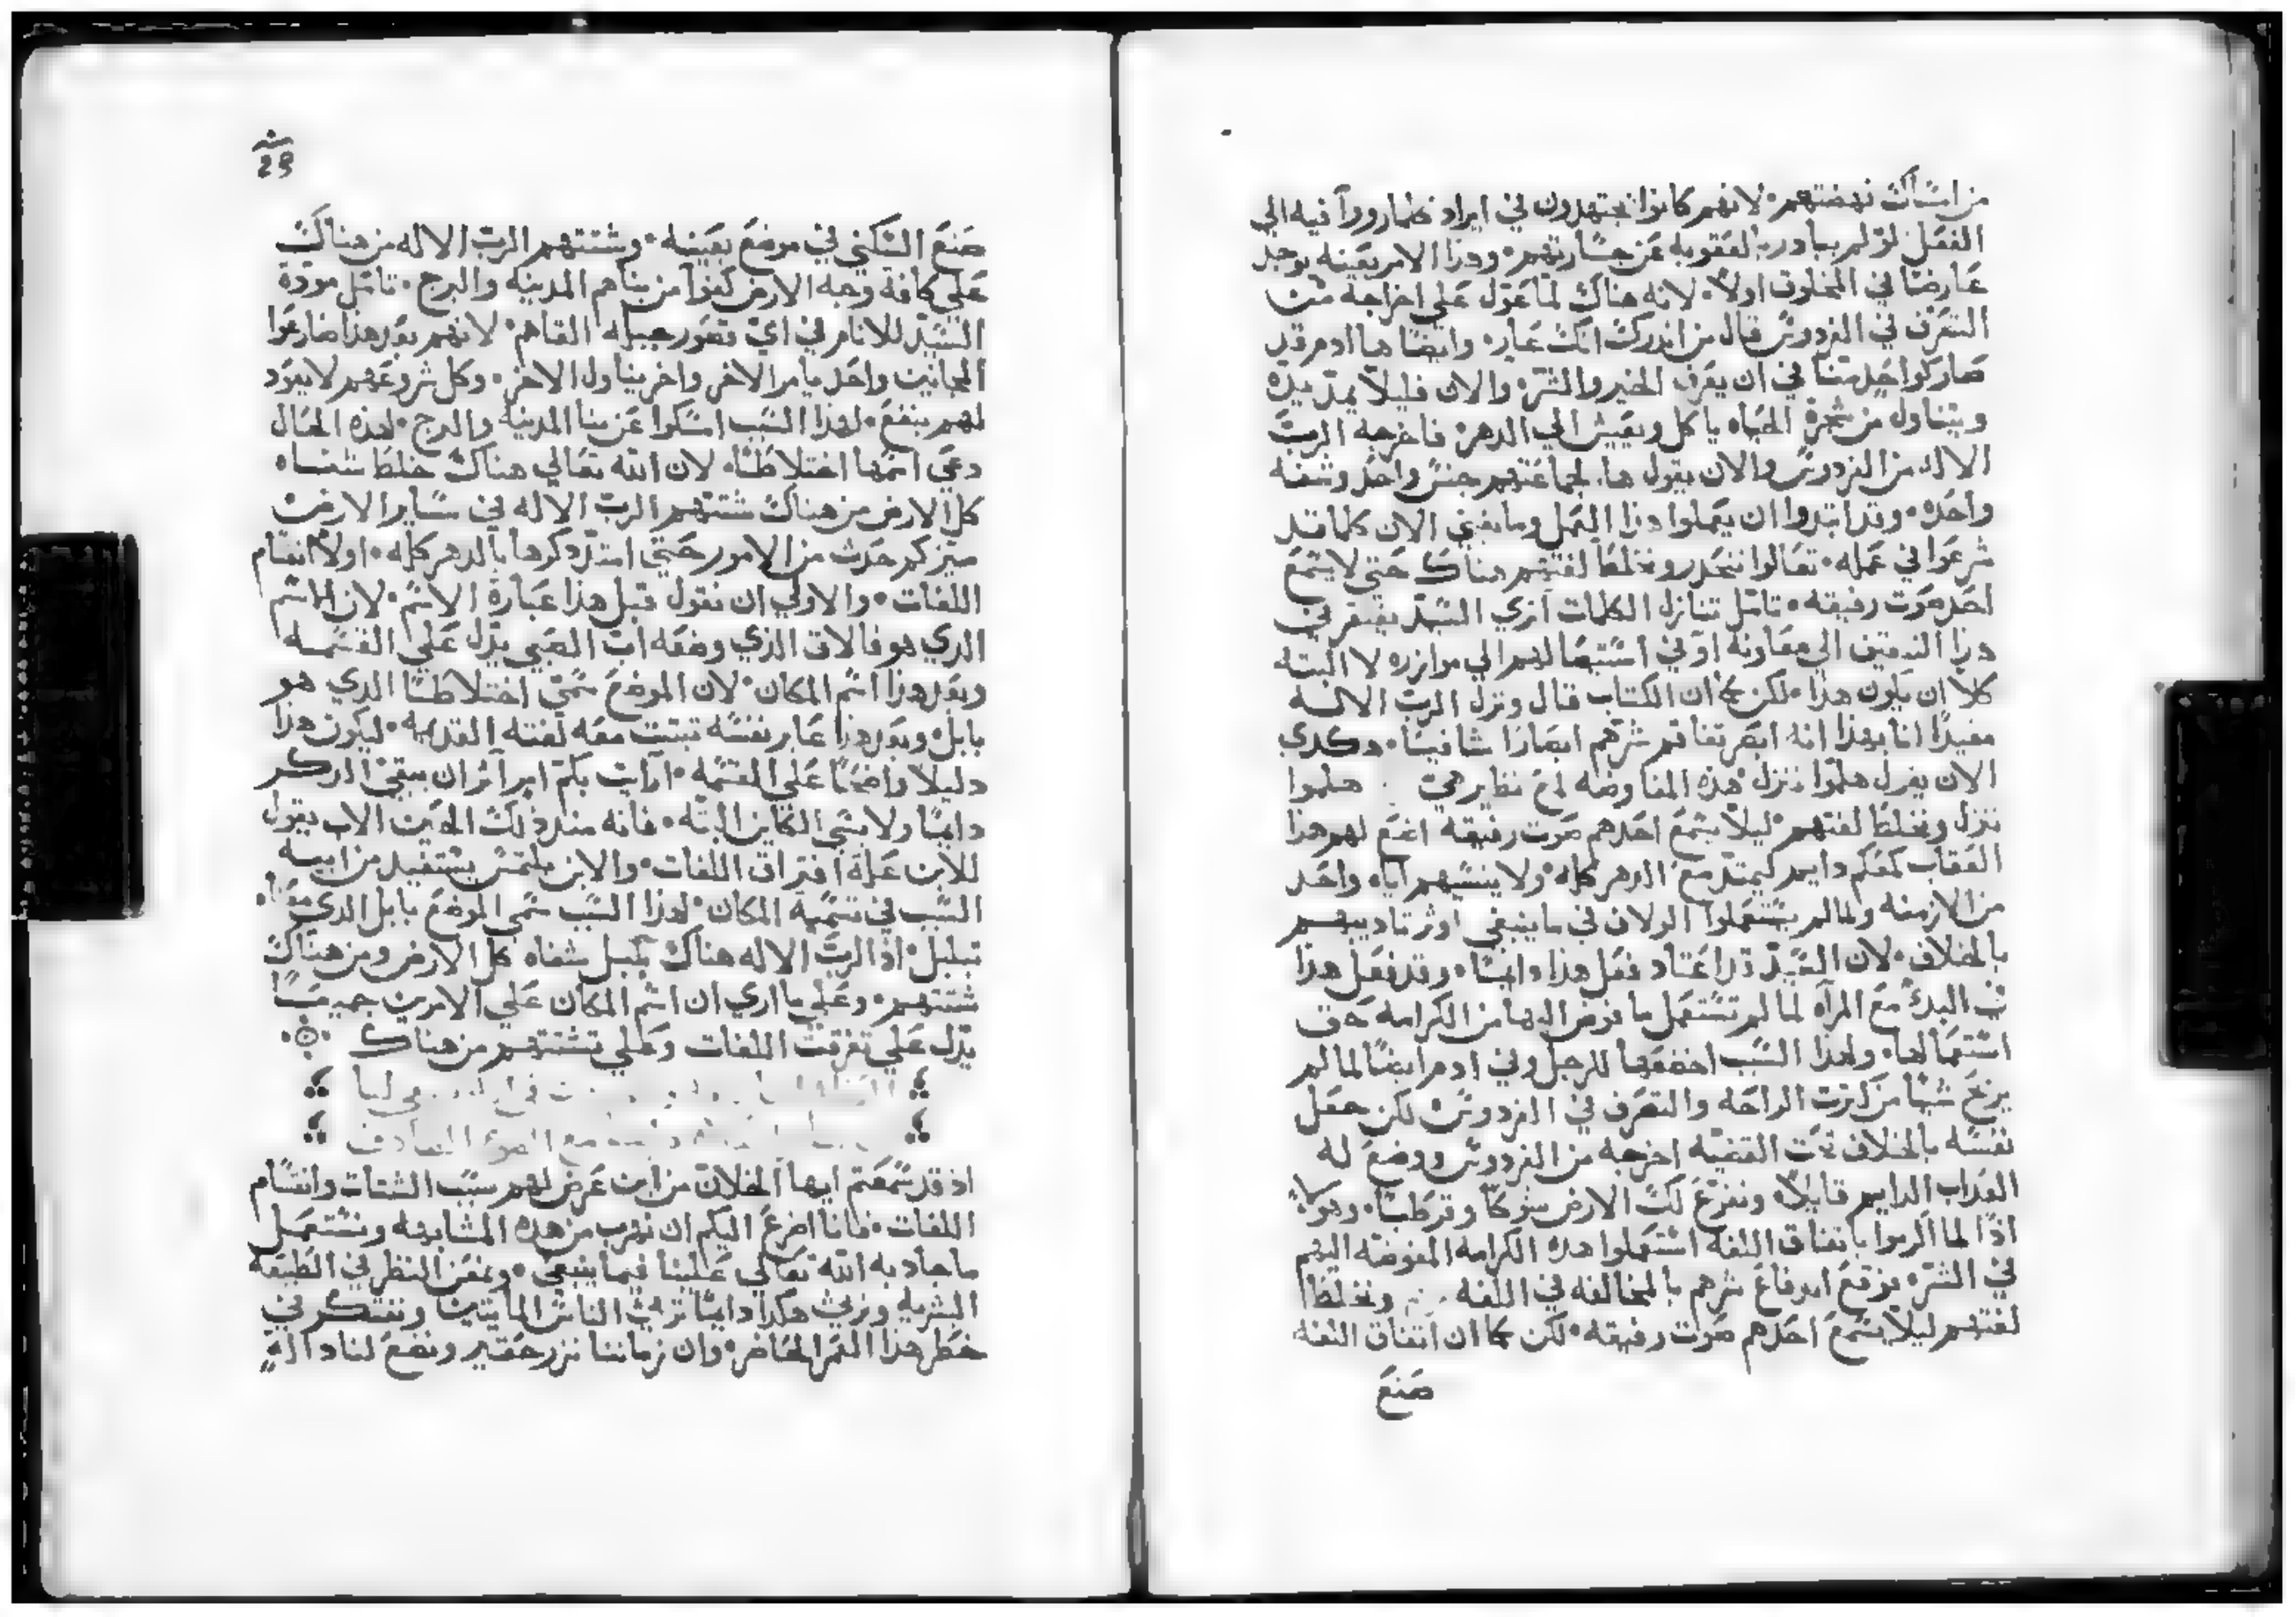 من امساك نهضتهم لانهم كانوا يجتهدون في ايراد كلما روواَ فيه الي
الفعل لو لم يبادر بالعقوبه عن جسارتهم وهذا الامر بعينه يوجد
عارضًا في المخلوق اولاً لانه هناك لما عوّل علي اخراجه من
التصرف في الفردوس قال من اندرك انك عار وايضًا ها ادم قد
صار كواحد منا في ان يعرف الخير والشر والان فليلا يمد يده
ويتناول من شجرة الحياه ياكل ويعيش الي الدهر فاخرجه الرب
الاله من الفردوس والان يقول ها لجماعتهم جنس واحد وشفه
واحده وقد ابتدوا ان يعملوا هذا العمل وما بقي الان كلما قد
شرعوا في عمله تعالوا ننحدر ونخلط لغتهم هناك حتي لا يسمع
احد صوت رفيقه تامل تنازل الكلمات اتري السيد يفتقر في
هذا التدقيق الي معاونه او في استتصالهم الي موازره لا البته
كلا ان يكون هذا لكن كما ان الكتاب قال ونزل الرب الاله
مفيدًا انا بهذا انه ابصر تفاقم شرهم ابصارًا شافيًا هكذي
الان يقول هلموا ننزل هذه المفاوضه مع نظايرهي هلموا
ننزل ونخلط لغتهم ليلا يسمع احدهم صوت رفيقه اضع لهم هذا
العقاب كمعكم دايم كيمتد مع الدهر كله ولا ينسيهم اياه واحد
من الازمنه ولما لم يستعملوا الولاف في ما ينبغي اوثر تاديبهم
بالخلاف لان السيد قد اعتاد فعل هذا دايمًا وقد فعل هذا
في البدء مع المراه لما لم تستعمل ما فوض اليها من الكرامه حق
استعمالها ولهذا السبب اخضعها للرجل وفي ادم ايضًا لما لم
يربح شيًا من كثرت الراحه والتصرف في الفردوس لكن جعل
نفسه بالخلاف تحت القضيه اخرجه من الفردوس ووضع له
العذاب الدايم قايلاً وتفزع لك الارض شوكًا وقرطبًا وهولاء
اذًا لما اكرموا باتفاق اللغه استعملوا هذه الكرامه المفوضه اليهم
في الشر فوقع اندفاع شرهم بالمخالفه في اللغه ونخلط
لغتهم ليلا يسمع احدهم صوت رفيقه لكن كما ان اتفاق اللغه
صنع
29
صنع السكني في موضع بعينه وشتتهم الرب الاله من هناك
علي كافة وجه الارض كفوا من بناهم المدينه والبرج تامل مودة
السيد للانام في اي تصور جبله القاهم لانهم بعد هذا ضارعوا
المجانين واحد يامر الاخر واخر يناول الاخر وكل شروعهم لا يعود
لهم بنفع لهذا السبب امسكوا عن بنا المدينه والبرج لهذه الحال
دعي اسمها اختلاطًا لان الله تعالي هناك خلط شفاه
كل الارض من هناك شتتهم الرب الاله في ساير الارض
ميز كم حدث من الامور حتي امتد ذكرها بالدهر كله اولاً انقسام
اللغات والاولي ان نقول قبل هذا عبارة الاسم لان الاسم
الذي هو فالاق الذي وضعه اب الصبي يدل علي القسمه
وبعد هذا اسم المكان لان الموضع سمي اختلاطًا الذي هو
بابل وبعد هذا عابر نفسه تبتت معه لغته القديمه ليكون هذا
دليلاً واضحًا علي القسمه ارايت بكم امر آثر ان يبقي الذكر
دايمًا ولا ينسي الكاين البته فانه منذ ذلك الحين الاب يقول
للابن علة افتراق اللغات والابن يلتمس يستفيد من ابيه
السبب في تسمية المكان لهذا السبب سمي الموضع بابل الذي معناه
تبلبل اذ الرب الاله هناك بلبل شفاه كل الارض ومن هناك
شتتهم وعلي ما اري ان اسم المكان علي الامرين جميعًا
يدل علي تفرقت اللغات وعلي تشتتهم من هناك
اذ قد سمعتم ايها الخلان من اين عرض لهم سبب الشتات وانقسام
اللغات فانا اضرع اليكم ان نهرب من هذه المشابهه ونستعمل
ما جاد به الله تعالي علينا فيما ينبغي ونمعن النظر في الطبيعه
البشريه ونرث هكذا دايمًا تراث الناس المايتين ونفتكر في
خطر هذا العمر الحاضر وان زماننا نزر حقير ونضع لنا دالة